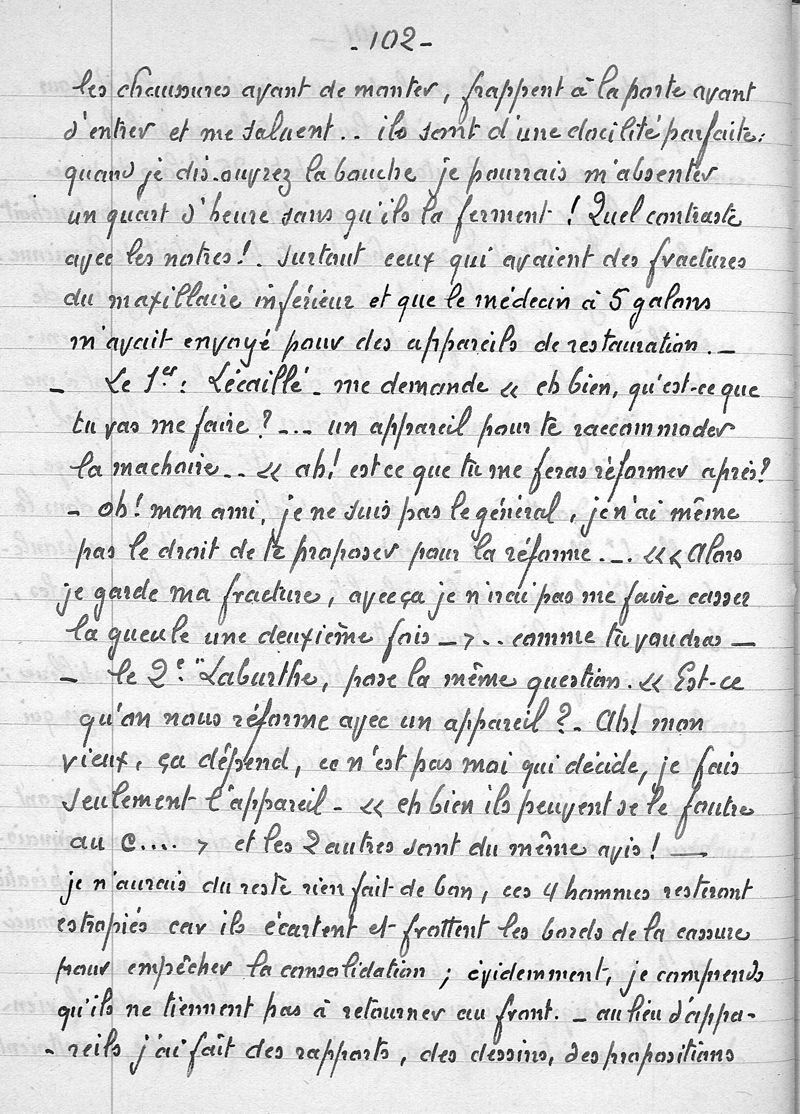 - 102 -
les chaussures avant de monter, frappent à la porte avant
d'entrer et me saluent.. ils sont d'une docilité parfaite:
quand je dis. ouvrez la bouche je pourrais m'absenter
un quart d'heure sans qu'ils la ferment ! Quel contraste
avec les notres !. surtout ceux qui avaient des fractures
du maxillaire inférieur et que le médecin à 5 galons
m'avait envoyé pour des appareils de restauration. _
_ Le 1er: Lécaillé - me demande « eh bien, qu'est-ce que
tu vas me faire ? -... un appareil pour te raccommoder
la machoire... « ah! est ce que tu me feras réformer après?
- oh! mon ami, je ne suis pas le général, je n'ai même
pas le droit de te proposer pour la réforme._. «« Alors
je garde ma fracture, avec ça je n'irai pas me faire casser
la gueule une deuxième fois _ > .. comme tu voudras _
_ le 2e: "Laburthe, pose la même question. « Est-ce
qu'on nous réforme avec un appareil ?. Ah! mon
vieux, ça dépend, ce n'est pas moi qui décide, je fais
seulement l'appareil - « eh bien ils peuvent se le foutre
au c.... > et les 2 autres sont du même avis ! _
je n'aurais du reste rien fait de bon, ces 4 hommes resteront
estropiés car ils écartent et frottent les bords de la cassure
pour empêcher la consolidation ; évidemment, je comprends
qu'ils ne tiennent pas à retourner au front. _ au lieu d'appa-
- reils j'ai fait des rapports, des dessins, des propositions